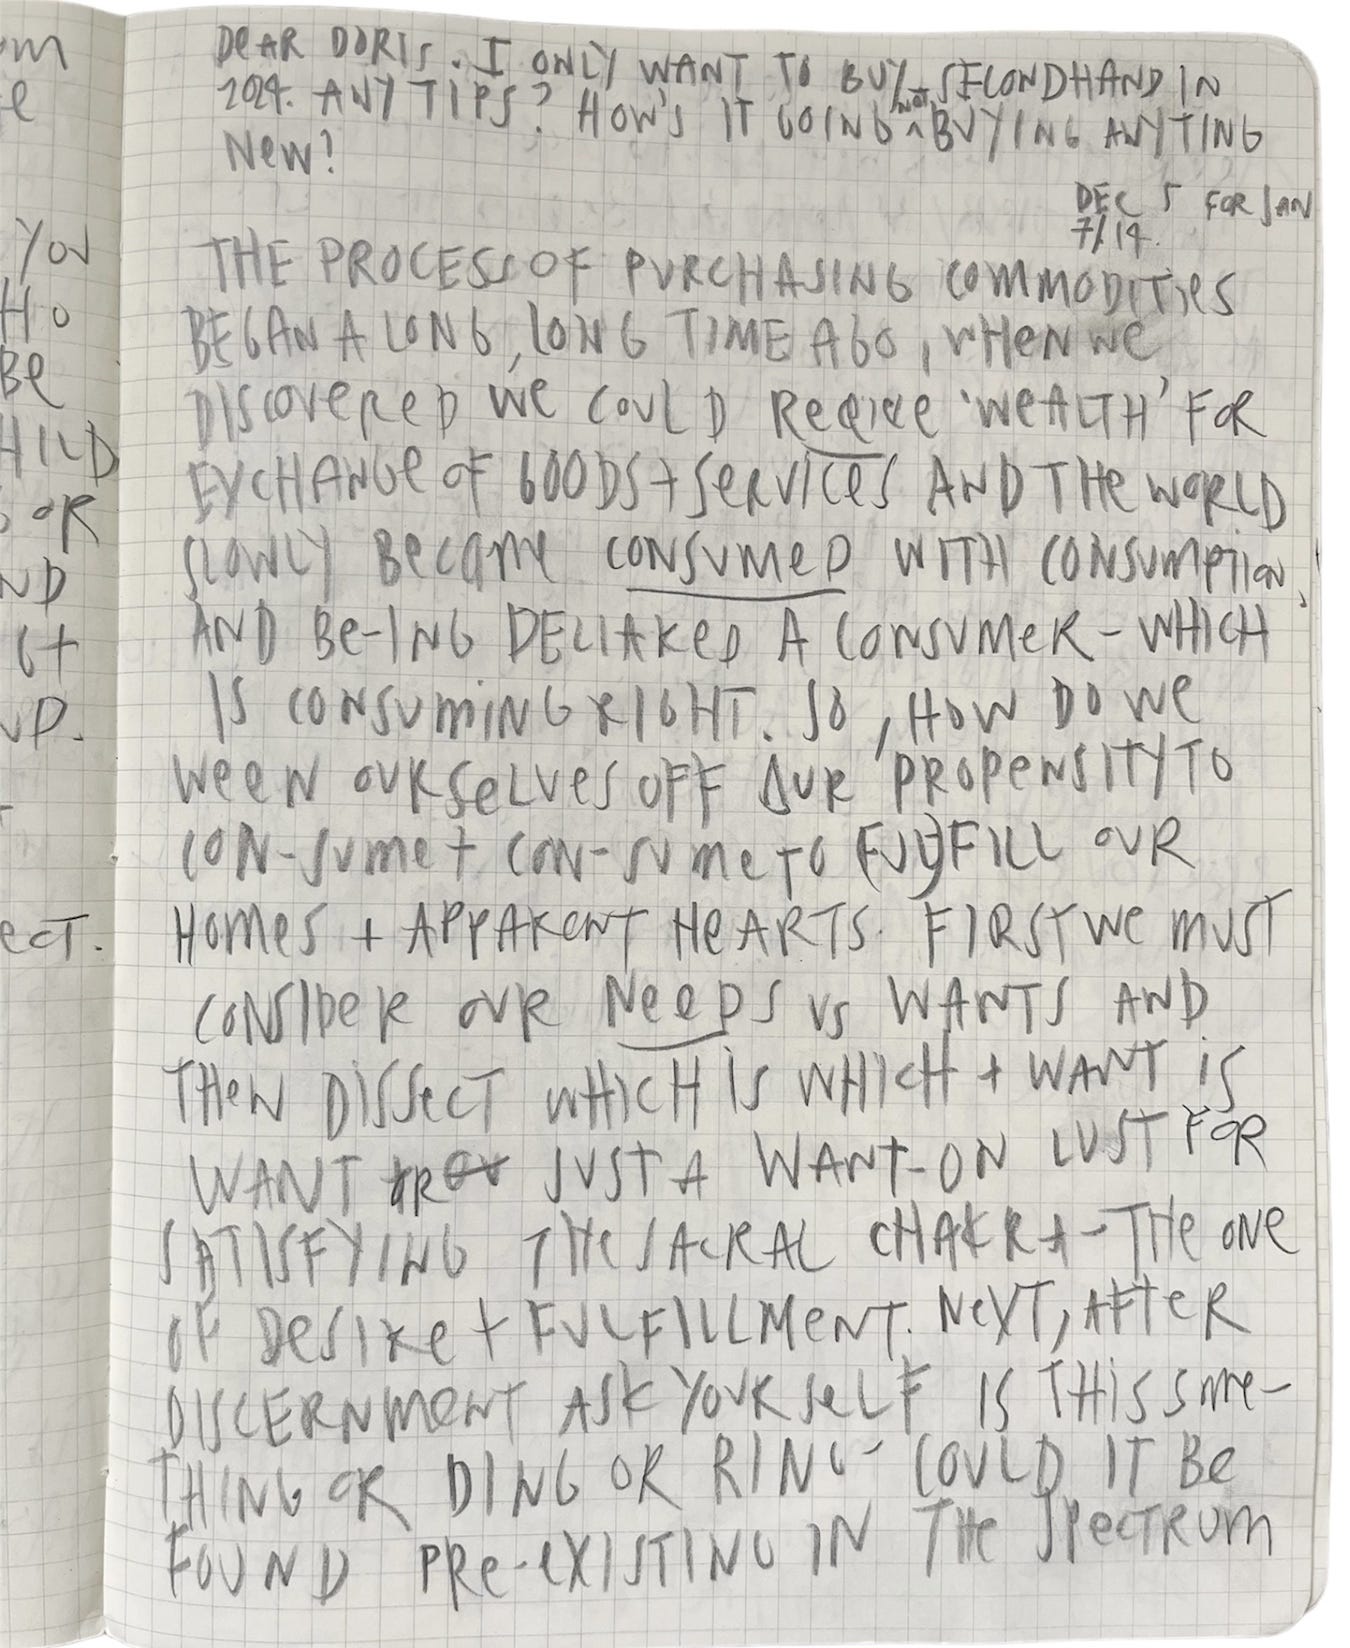 om
e
YOU
HO
BE
HILD
OR
ND
G+
UD.
ECT.
DEAR DORIS. I ONLY WANT TO BUY SECONDHAND IN
2024. ANY TIPS? HOW'S IT GOING ^NOT BUYING ANYTING
NEW?
DEC 5 FOR JAN
7/14.
THE PROCESS OF PURCHASING COMMODITIES
BEGAN A LONG, LONG TIME AGO, WHEN WE
DISCOVERED WE COULD 'WEALTH' FOR
EXCHANGE OF GOODS + SERVICES AND THE WORLD
SLOWLY BECAME CONSUMED WITH CONSUMPTION,
AND BE-ING A CONSUMER - WHICH
IS CONSUMING RIGHT. SO, HOW DO WE
WEEN OURSELVES OFF OUR PROPENSITY TO
CON-SUME + CON-SUME TO (FUL)FILL OUR
HOMES + APPARENT HEARTS. FIRST WE MUST
CONSIDER OUR NEEDS VS WANTS AND
THEN DISSECT WHICH IS WHICH + WANT IS
WANT OR JUST A WANT-ON LUST FOR
SATISFYING THE SACRAL CHAKRA - THE ONE
OF DESIRE + FULFILLMENT. NEXT, AFTER
DISCERNMENT ASK YOURSELF IS THIS SME-
THING OR DING OR RING - COULD IT BE
FOUND PRE-EXISTING IN THE SPECTRUM